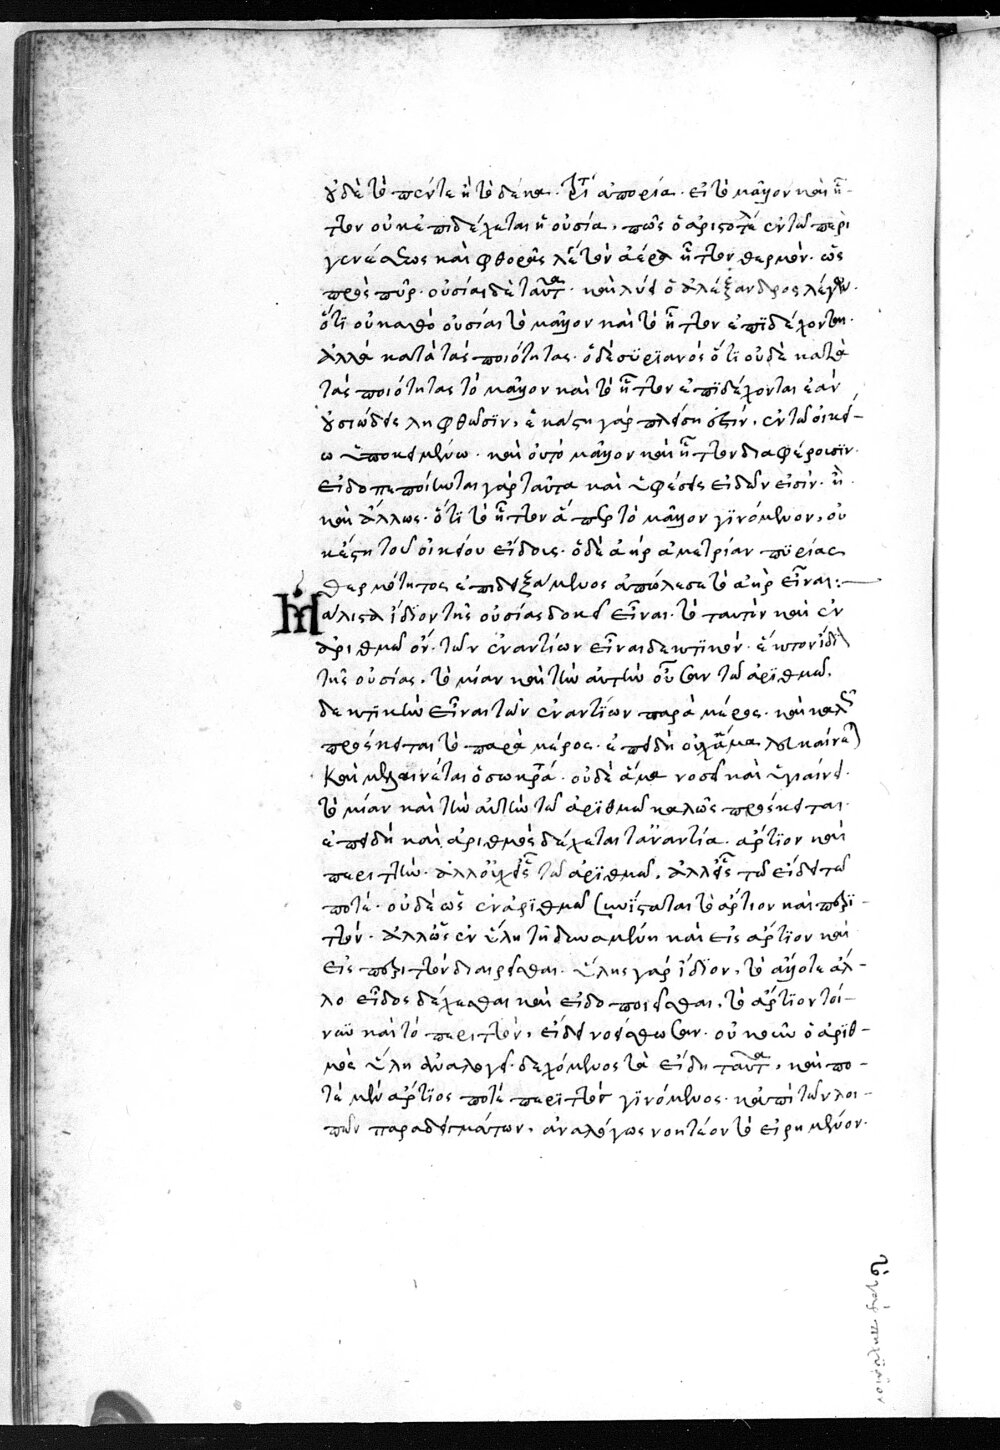 οὐδὲ τὸ πέντε ἢ τὸ δέκα. ἀπορία. εἰ τὸ μᾶλλον καὶ ἧτ-
τον οὐκ ἐπιδέχεται ἡ οὐσία, πῶς ὁ ἀριστοτέλης ἐν τῶ περὶ
γενέσεως καὶ φθορᾶς λέγει τὸν ἀέρα ἧττον θερμὸν. ὡς
πρὸς πῦρ. οὐσίαι δὲ ταῦτα. καὶ λύει ὁ ἀλέξανδρος λέγων.
ὅτι οὐ καθὸ οὐσίαι τὸ μᾶλλον καὶ τὸ ἧττον ἐπιδέχονται.
ἀλλὰ κατὰ τὰς ποιότητας. ὁ δὲ συριανὸς ὅτι οὐδὲ κατὰ
τὰς ποιότητας τὸ μᾶλλον καὶ τὸ ἧττον ἐπιδέχονται ἐὰν
οὐσιώδεις ληφθῶσιν, ἑκάστη γὰρ πλήρης ἐστίν, ἐν τῶ οἰκεί-
ω ὑποκειμένω. καὶ οὐ τὸ μᾶλλον καὶ ἧττον διαφέρουσιν.
εἰδοπεποίωται γὰρ ταῦτα καὶ ὑφέσεις εἰδῶν εἰσίν. ἢ
καὶ ἄλλως. ὅτι τὸ ἧττον ἅπερ τὸ μᾶλλον γινόμενον, οὐ
κέστη τοῦ οἰκείου εἴδους. ὁ δὲ ἀὴρ ἀμετρίαν πυρίας
θερμότητος ἐπιδεξάμενος ἀπόλεσε τὸ ἀὴρ εἶναι:
Μάλιστα ἴδιον τῆς οὐσίας δοκεῖ εἶναι. τὸ ταυτὸν καὶ ἓν
ἀριθμῶ ὂν. τῶν ἐναντίων εἶναι δεκτικόν. ἕκτον ἴδιον
τῆς οὐσίας, τὸ μίαν καὶ τὴν αὐτὴν οὖσαν τῶ ἀριθμῶ,
δεκτικὴν εἶναι τῶν ἐναντίων παρὰ μέρος. καὶ καλῶς
πρόσκειται τὸ παρὰ μέρος. ἐπειδὴ οὐχ ἅμα λευκαίνεται
καὶ μελαίνεται ὁ σωκράτης. οὐδὲ ἅμα νοσεῖ καὶ ὑγιαίνει.
τὸ μίαν καὶ τὴν αὐτὴν τῶ ἀριθμῶ καλῶς πρόσκειται.
ἐπειδὴ καὶ ἀριθμὸς δέχεται τἀναντία. ἄρτιον καὶ
περιττὸν. ἀλλ' οὐχ εἷς τῶ ἀριθμῶ, ἀλλ' εἷς τῶ εἴδει τῶ
ποτέ. οὐδὲ ὡς ἐν ἀριθμῶ συνίσταται τὸ ἄρτιον καὶ περιτ-
τόν. ἀλλ' ὡς ἐν ὕλη τῆ δυναμένη καὶ εἰς ἄρτιον καὶ
εἰς περιττὸν διαιρεῖσθαι. ὕλης γὰρ ἴδιον, τὸ ἄλλοτε ἄλ-
λο εἶδος δέχεσθαι καὶ εἰδοποιεῖσθαι, τὸ ἄρτιον τοί-
νυν καὶ τὸ περιττὸν, εἴδει νοείσθωσαν. οὐκοῦν ὁ ἀριθ-
μὸς ὕλη ἀναλογεῖ. δεχόμενος τὰ εἴδη ταῦτα, καὶ πο-
τὲ μὲν ἄρτιος ποτὲ περιττὸς γινόμενος. κἀπὶ τῶν λοι-
πῶν παραδειγμάτων, ἀναλόγως νοητέον τὸ εἰρημένον.